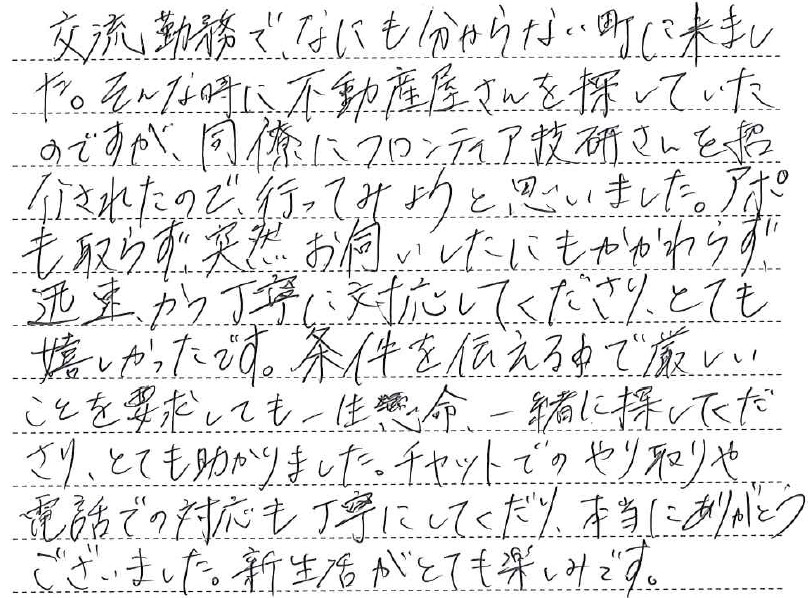 交流勤務で、なにも分からない町に来まし
た。そんな時に不動産屋さんを探していた
のですが、同僚にフロンティア技研さんを紹
介されたので、行ってみようと思いました。アポ
も取らず、突然お伺いしたにもかかわらず、
迅速、かつ丁寧に対応してくださり、とても
嬉しかったです。条件を伝える中で厳しい
ことを要求しても一生懸命、一緒に探してくだ
さり、とても助かりました。チャットでのやり取りや
電話での対応も丁寧にしてくだり、本当にありがとう
ございました。新生活がとても楽しみです。